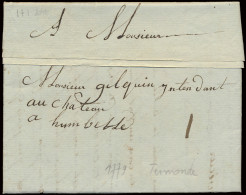 A Monsieur
Monsieur gilquin yntendant
au chateau
a humbelle
1
1779 Termonde